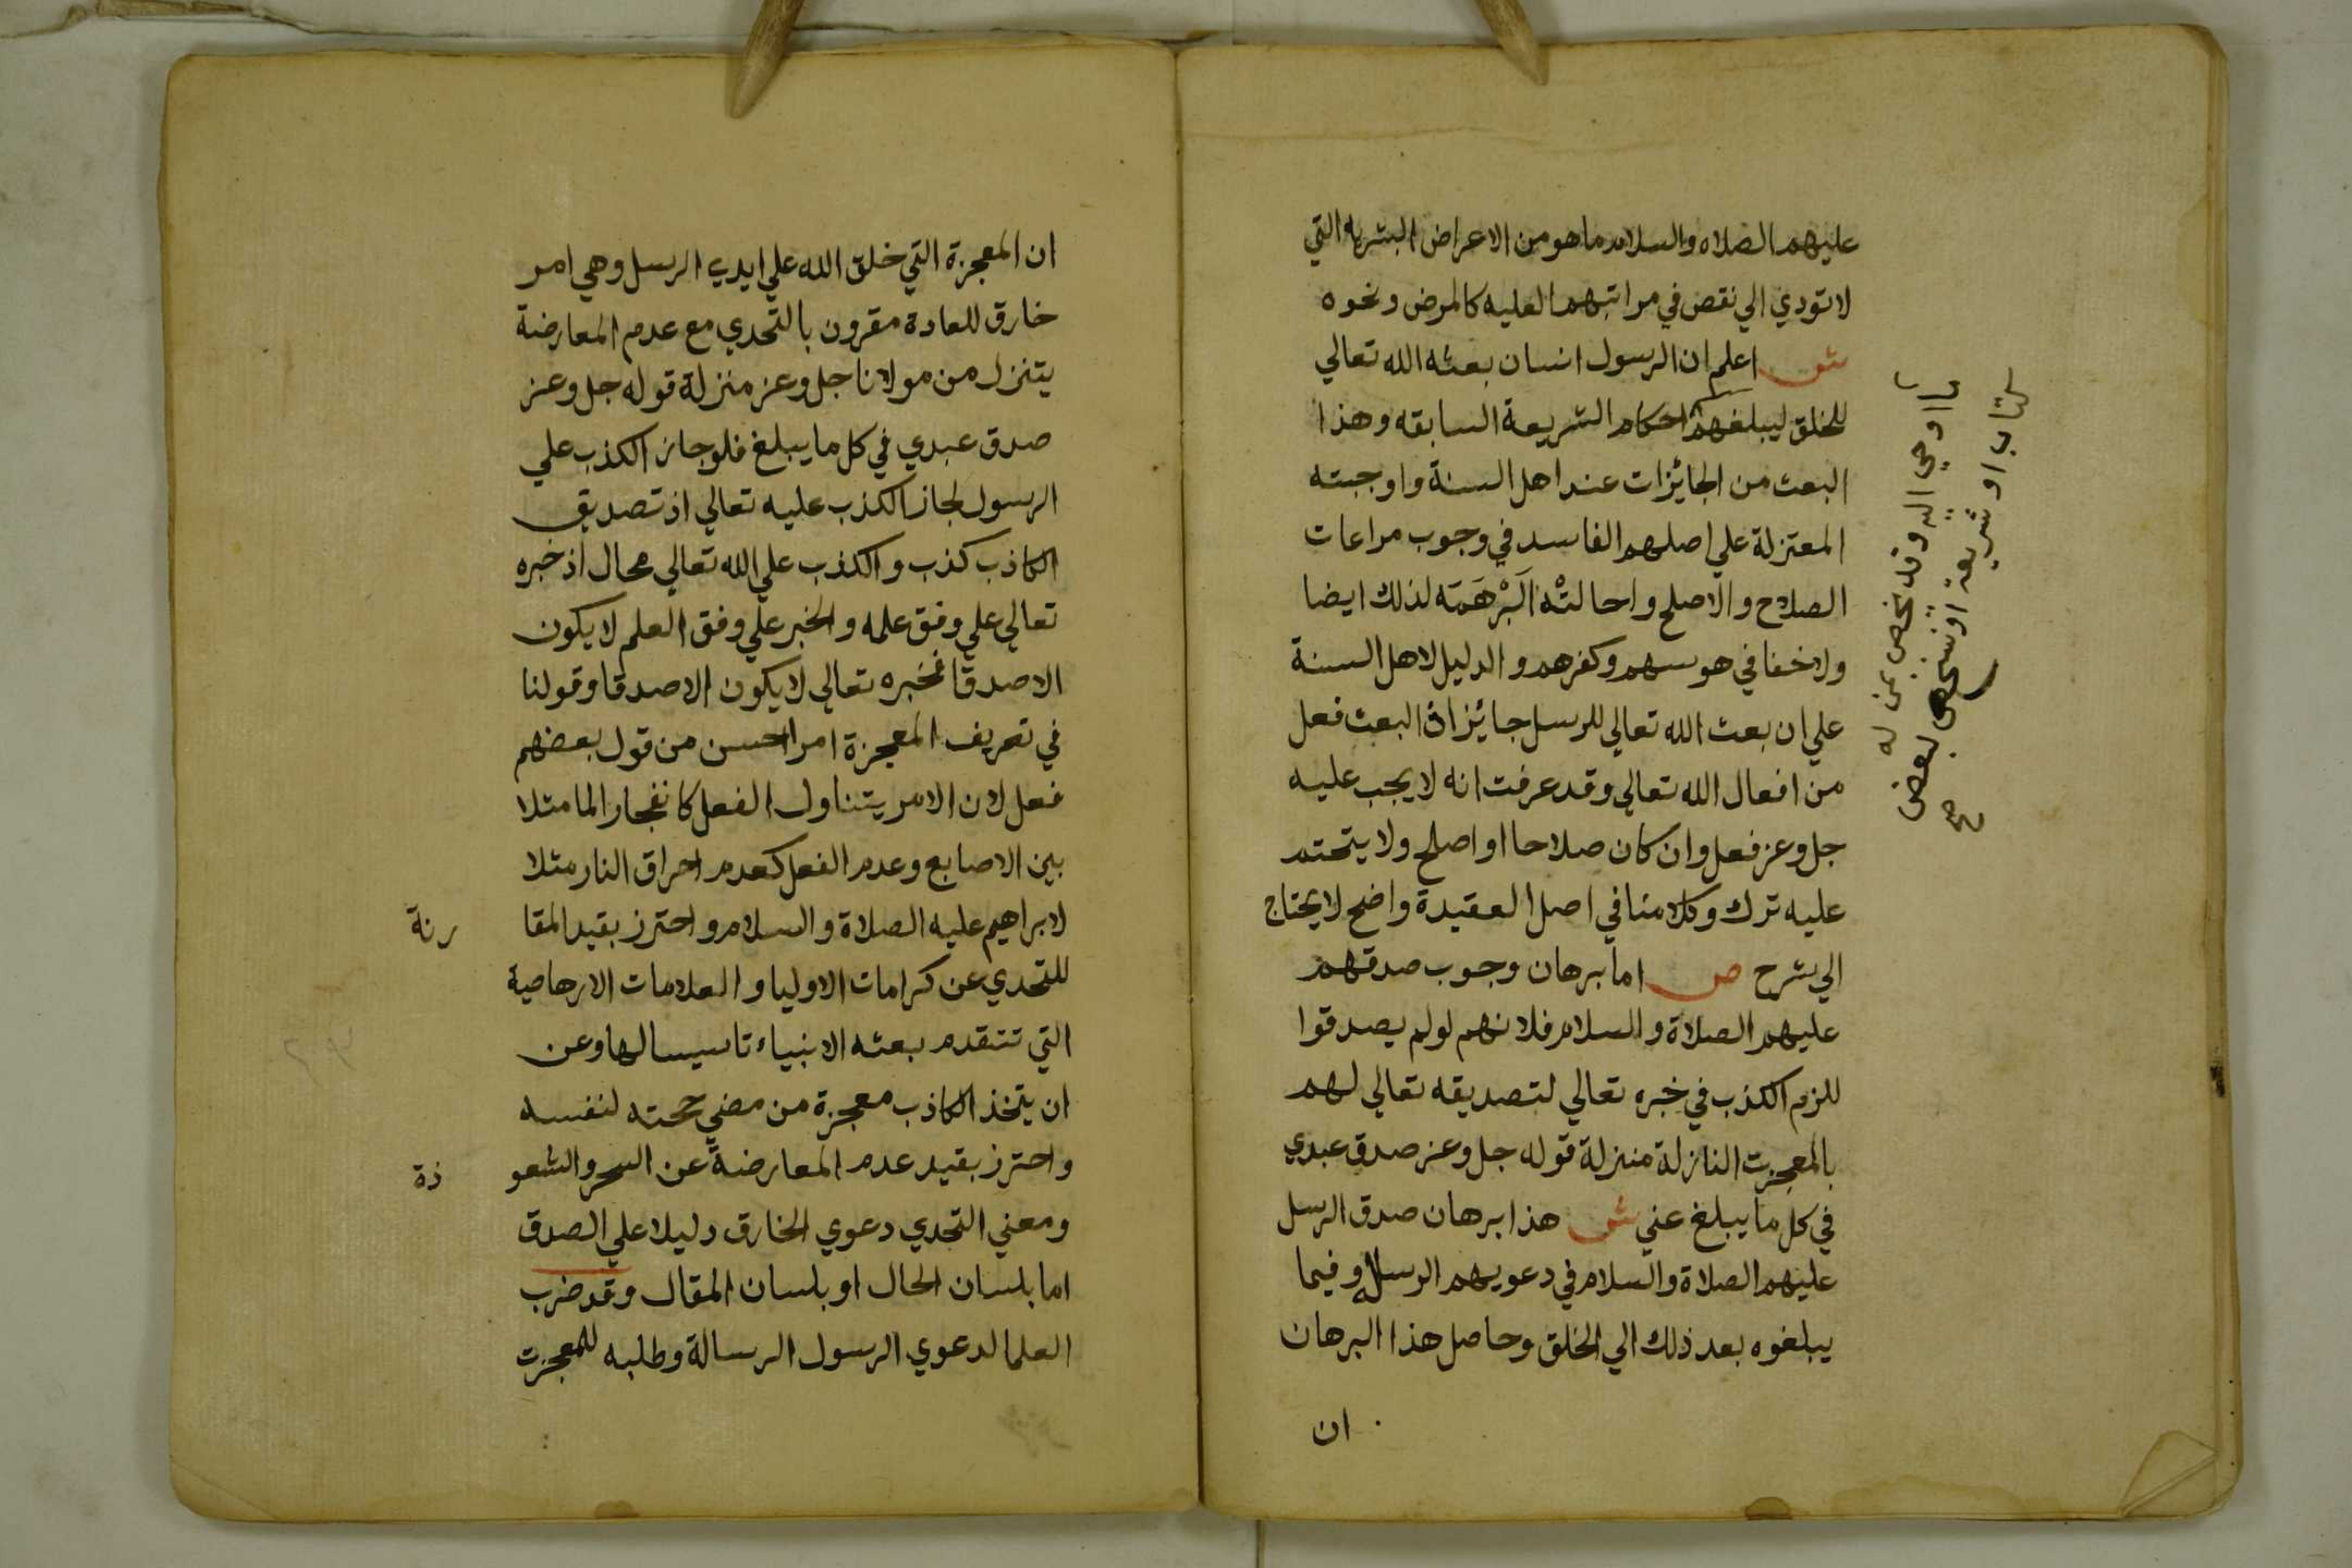 عليهم الصلاه والسلام ما هو من الاعراض البشريه التي
لا تودي الي نقص في مراتبهم العليه كالمرض ونحوه
ش اعلم ان الرسول انسان بعثه الله تعالي
للخلق ليبلغهم احكام الشريعة السابقه وهذا
البعث من الجائزات عند اهل السنة واوجبته
المعتزلة علي اصلهم الفاسد في وجوب مراعات
الصلاح والاصلح واحالتْه البَرْهَمَه لذلك ايضا
ولا خفا في هوسهم وكفرهم والدليل لاهل السنة
علي ان بعث الله تعالي للرسل جائز ان البعث فعل
من افعال الله تعالي وقد عرفت انه لا يجب عليه
جل وعز فعل وان كان صلاحا او اصلح ولا يتحتم
عليه ترك وكلامنا في اصل العقيدة واضح لا يحتاج
الي شرح ص اما برهان وجوب صدقهم
عليهم الصلاة والسلام فلانهم لو لم يصدقوا
للزم الكذب في خبره تعالي لتصديقه تعالي لهم
بالمعجزت النازلة منزلة قوله جل وعز صدق عبدي
في كل ما يبلغ عني ش هذا برهان صدق الرسل
عليهم الصلاة والسلام في دعويهم الرسل وفيما
يبلغوه بعد ذلك الي الخلق وحاصل هذا البرهان
ان
ما اوحي اليه وقد يخص من له
كتاب او شريعة او نسخ لبعض
ان المعجزة التي خلق الله علي ايدي الرسل وهي امر
خارق للعادة مقرون بالتحدي مع عدم المعارضة
يتنزل من مولانا جل وعز منزلة قوله جل وعز
صدق عبدي في كل ما يبلغ فلو جاز الكذب علي
الرسول لجاز الكذب عليه تعالي اذ تصديق
الكاذب كذب والكذب علي الله تعالي محال اذ خبره
تعالي علي وفق علمه والخبر علي وفق العلم لا يكون
الا صدقا فخبره تعالي لا يكون الا صدقا وقولنا
في تعريف المعجزة امر احسن من قول بعضهم
فعل لان الامر يتناول الفعل كانفجار الما مثلا
بين الاصابع وعدم الفعل كعدم احراق النار مثلا
لابراهيم عليه الصلاة والسلام واحترز بقيد المقا رنة
للتحدي عن كرامات الاوليا والعلامات الارهاصية
التي تتقدم بعثه الانبياء تاسيسا لها وعن
ان يتخذ الكاذب معجزة من مضي حجته لنفسه
واحترز بقيد عدم المعارضة عن السحر والشعو ذة
ومعني التحدي دعوي الخارق دليلا علي الصدق
اما بلسان الحال او بلسان المقال وقد ضرب
العلما لدعوي الرسول الرسالة وطلبه للمعجزت